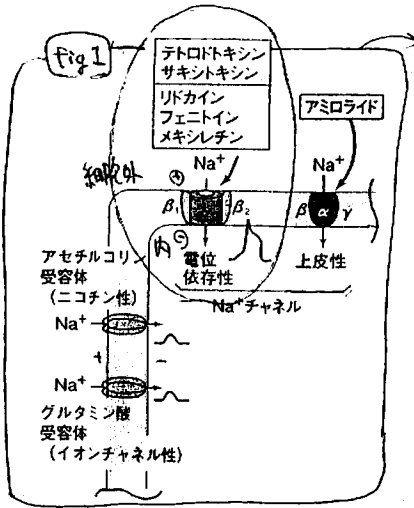 Fig 1
テトロドトキシン
サキシトキシン
リドカイン
フェニトイン
メキシレチン
アミロライド
Na⁺
Na⁺
細胞外
⊕
β₁
β₂
β
α
γ
内
⊖
電位
依存性
上皮性
Na⁺チャネル
アセチルコリン
受容体
(ニコチン性)
Na⁺
+
−
Na⁺
グルタミン酸
受容体
(イオンチャネル性)